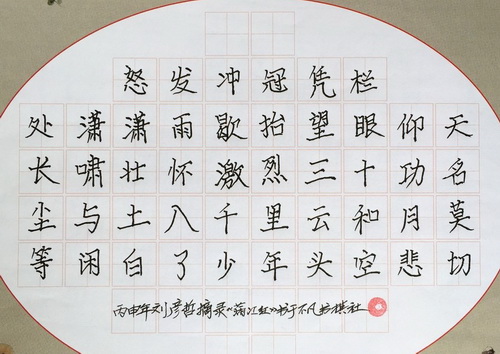 怒发冲冠凭栏
处潇潇雨歇抬望眼仰天
长啸壮怀激烈三十功名
尘与土八千里云和月莫
等闲白了少年头空悲切
丙申年刘彦哲摘录《满江红》书于不凡书棋社